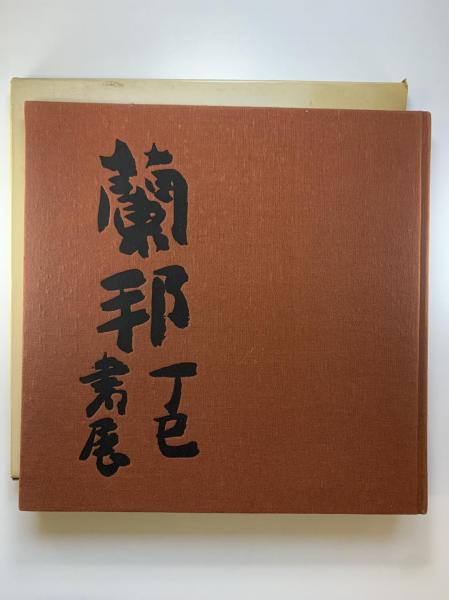 蘭邦
丁巳
書展